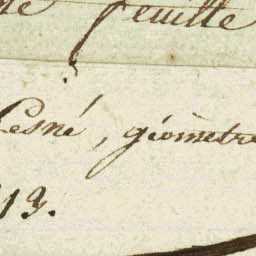 feuille
Lesné, géomètre
13.